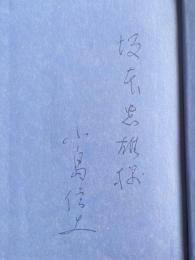 坂本忠雄様
小島信夫